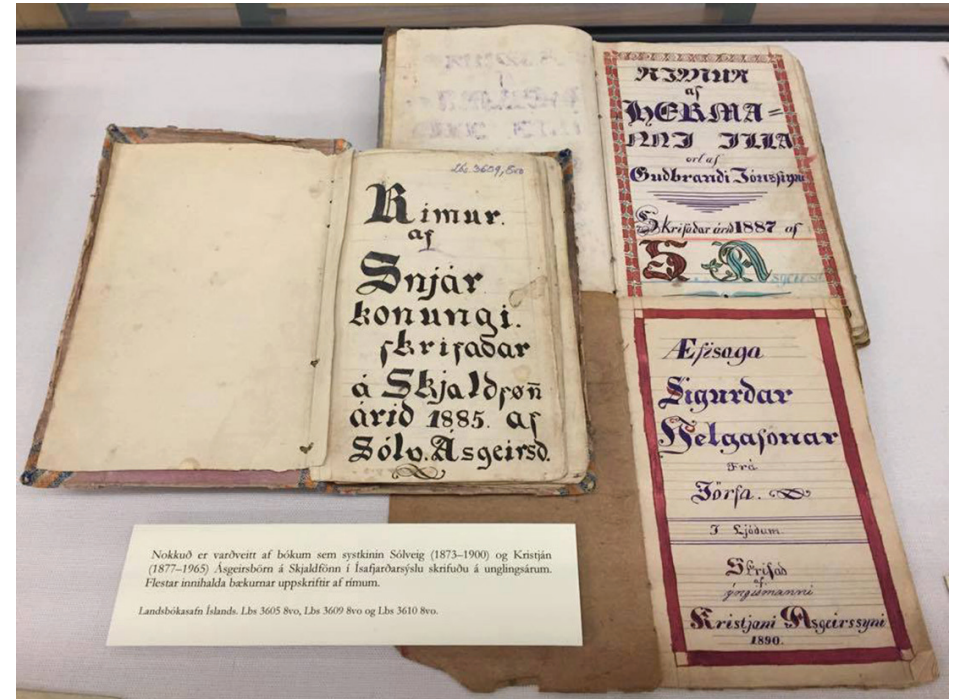 Lbs 3609, 8vo
Rímur.
af
Snjár
konungi.
skrifaðar
á Skjaldfön̄
árið 1885. af
Sólv. Ásgeirsd.
RIMUR
af
HERMA=
NNI ILLA
ort af
Gudbrandi Jónssyni
Skrifaðar árid 1887 af
S. Asgeirsd.
Æfisaga
Sigurdar
Helgasonar
Frá
Jörfa.
I Ljódum.
Skrifad
af
yngismanni
Kristjani Asgeirssyni
1890.
Nokkuð er varðveitt af bókum sem systkinin Sólveig (1873–1900) og Kristján
(1877–1965) Ásgeirsbörn á Skjaldfönn í Ísafjarðarsýslu skrifuðu á unglingsárum.
Flestar innihalda bækurnar uppskriftir af rímum.
Landsbókasafn Íslands. Lbs 3605 8vo, Lbs 3609 8vo og Lbs 3610 8vo.